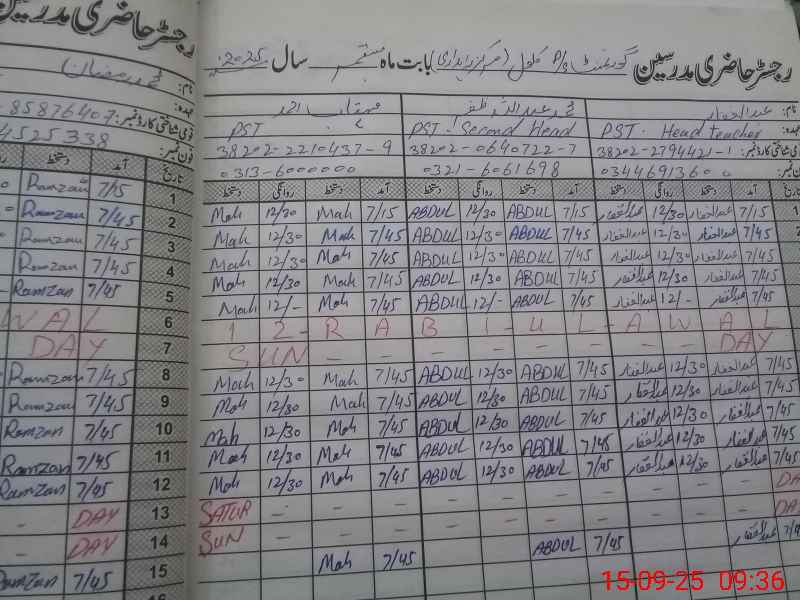 رجسٹر حاضری مدرسین
رجسٹر حاضری مدرسین گورنمنٹ P/S بابت ماہ ستمبر سال 2025
نام: محمد رمضان
نام: عبدالغفار
عہدہ:
PST
PST. Second Head
PST. Head teacher
85876407 قومی شناختی کارڈ نمبر:
38202-2210437-9
38202-0640722-7
قومی شناختی کارڈ نمبر: 38202-2794421-1
4525338 فون نمبر:
0313-6000000
0321-6061698
دستخط آمد تاریخ
دستخط روانگی دستخط آمد دستخط روانگی دستخط آمد دستخط روانگی دستخط آمد
Ramzan 7/15 1 Mah 12/30 Mah 7/15 ABDUL 12/30 ABDUL 7/15 عبدالغفار 12/30 عبدالغفار 7/15
Ramzan 7/45 2 Mah 12/30 Mah 7/45 ABDUL 12/30 ABDUL 7/45 عبدالغفار 12/30 عبدالغفار 7/45
Ramzan 7/45 3 Mah 12/30 Mah 7/45 ABDUL 12/30 ABDUL 7/45 عبدالغفار 12/30 عبدالغفار 7/45
Ramzan 7/45 4 Mah 12/30 Mah 7/45 ABDUL 12/30 ABDUL 7/45 عبدالغفار 12/30 عبدالغفار 7/45
Ramzan 7/45 5 Mah 12/- Mah 7/45 ABDUL 12/- ABDUL 7/45 عبدالغفار 12/- عبدالغفار 7/45
WAL 6 12-RABI-UL-AWAL
DAY 7 SUN - - - - - - - - - - DAY
Ramzan 7/45 8 Mah 12/30 Mah 7/45 ABDUL 12/30 ABDUL 7/45 عبدالغفار 12/30 عبدالغفار 7/45
Ramzan 7/45 9 Mah 12/30 Mah 7/45 ABDUL 12/30 ABDUL 7/45 عبدالغفار 12/30 عبدالغفار 7/45
Ramzan 7/45 10 Mah 12/30 Mah 7/45 ABDUL 12/30 ABDUL 7/45 عبدالغفار 12/30 عبدالغفار 7/45
Ramzan 7/45 11 Mah 12/30 Mah 7/45 ABDUL 12/30 ABDUL 7/45 عبدالغفار 12/30 عبدالغفار 7/45
Ramzan 7/45 12 Mah 12/30 Mah 7/45 ABDUL 12/30 ABDUL 7/45 عبدالغفار 12/30 عبدالغفار 7/45
- DAY 13 SATUR - - - - - - - - - - DA
- DAY 14 SUN - - - - - - - - - - DA
Ramzan 7/45 15 Mah 7/45 ABDUL 7/45 عبدالغفار 7/45
15-09-25 09:36